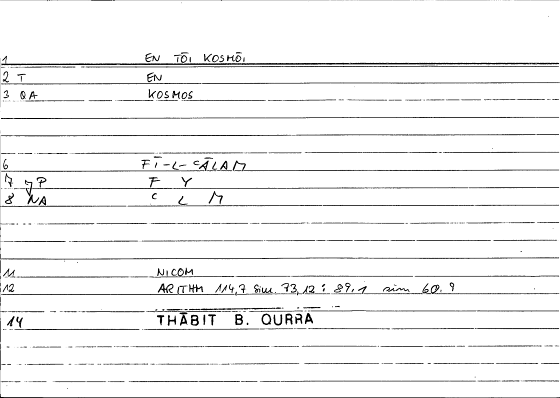 1 EN TŌI KOSMŌI
2 T EN
3 QA KOSMOS
6 FĪ-L-ᶜĀLAM
7 JP F Y
8 NA ᶜ L M
11 NICOM
12 ARITHM 114,7 sim. 73,12 : 89.1 sim 60.9
14 THĀBIT B. QURRA